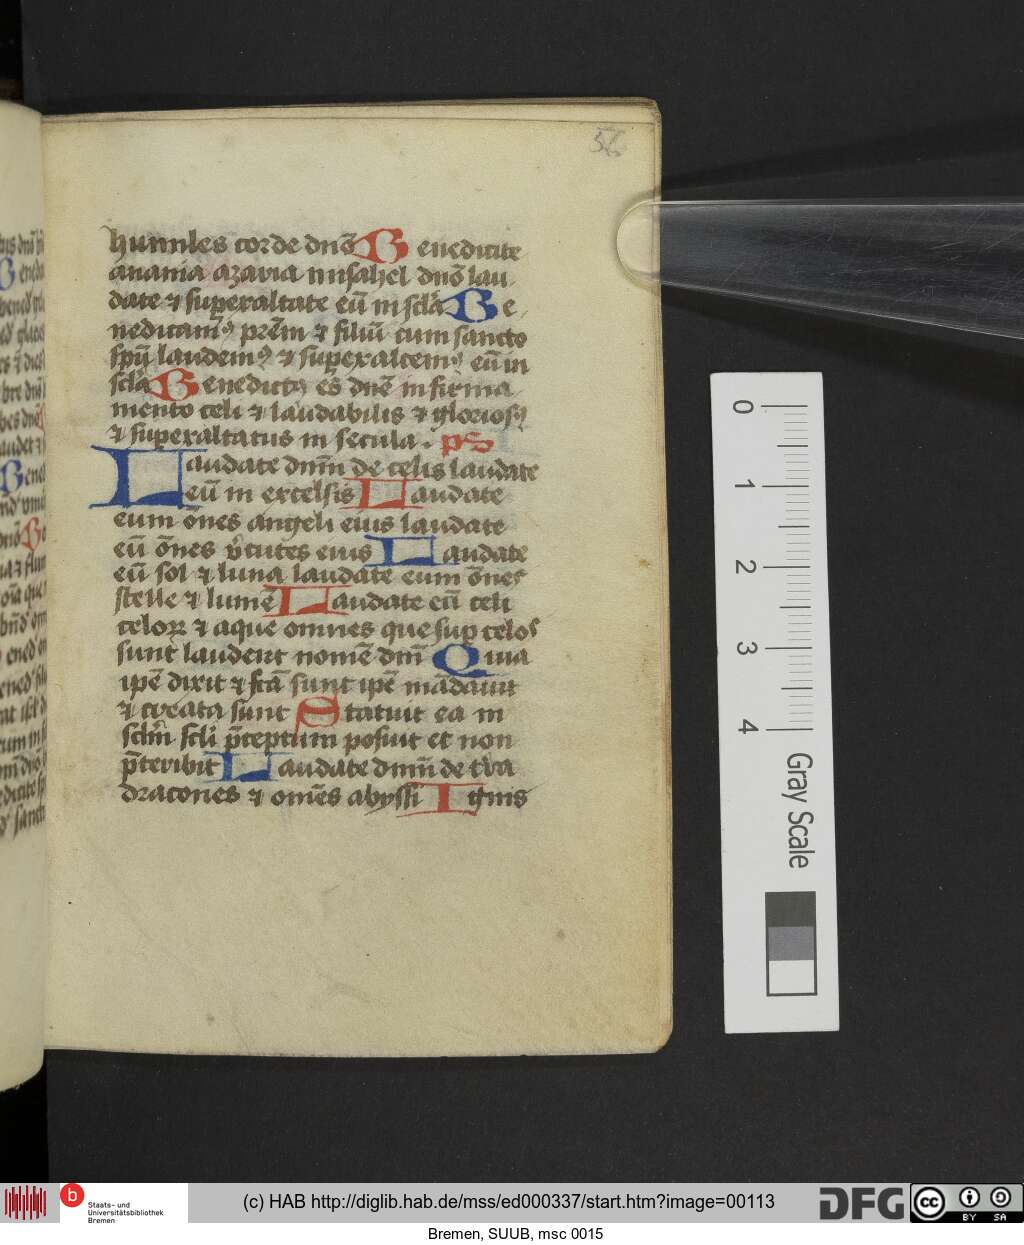 56
humiles corde dnō Benedicite
anania azaria misahel dnō lau
date ⁊ superaltate eū in scła Be
nedicamꝰ prēm ⁊ filiū cum sancto
spū laudemꝰ ⁊ superaltemꝰ eū in
scła Benedictꝰ es dnē in firma
mento celi ⁊ laudabilis ⁊ gloriosꝰ
⁊ superaltatus in secula. ps
Laudate dnm̄ de celis laudate
eū in excelsis Laudate
eum ōnes angeli eius laudate
eū ōnes v̄tutes eius Laudate
eū sol ⁊ luna laudate eum ōnes
stelle ⁊ lumē Laudate eū celi
celoꝝ ⁊ aque omnes que sup celos
sunt laudent nomē dnī Quia
ipē dixit ⁊ fcā sunt ipē mādauit
⁊ creata sunt Statuit ea in
scłm scłi p̄ceptum posuit et non
p̄teribit Laudate dnm̄ de tr̄a
dracones ⁊ om̄es abyssi Ignis
0
1
2
3
4
Gray Scale
b
Staats- und
Universitätsbibliothek
Bremen
(c) HAB http://diglib.hab.de/mss/ed000337/start.htm?image=00113
DFG
cc BY SA
Bremen, SUUB, msc 0015